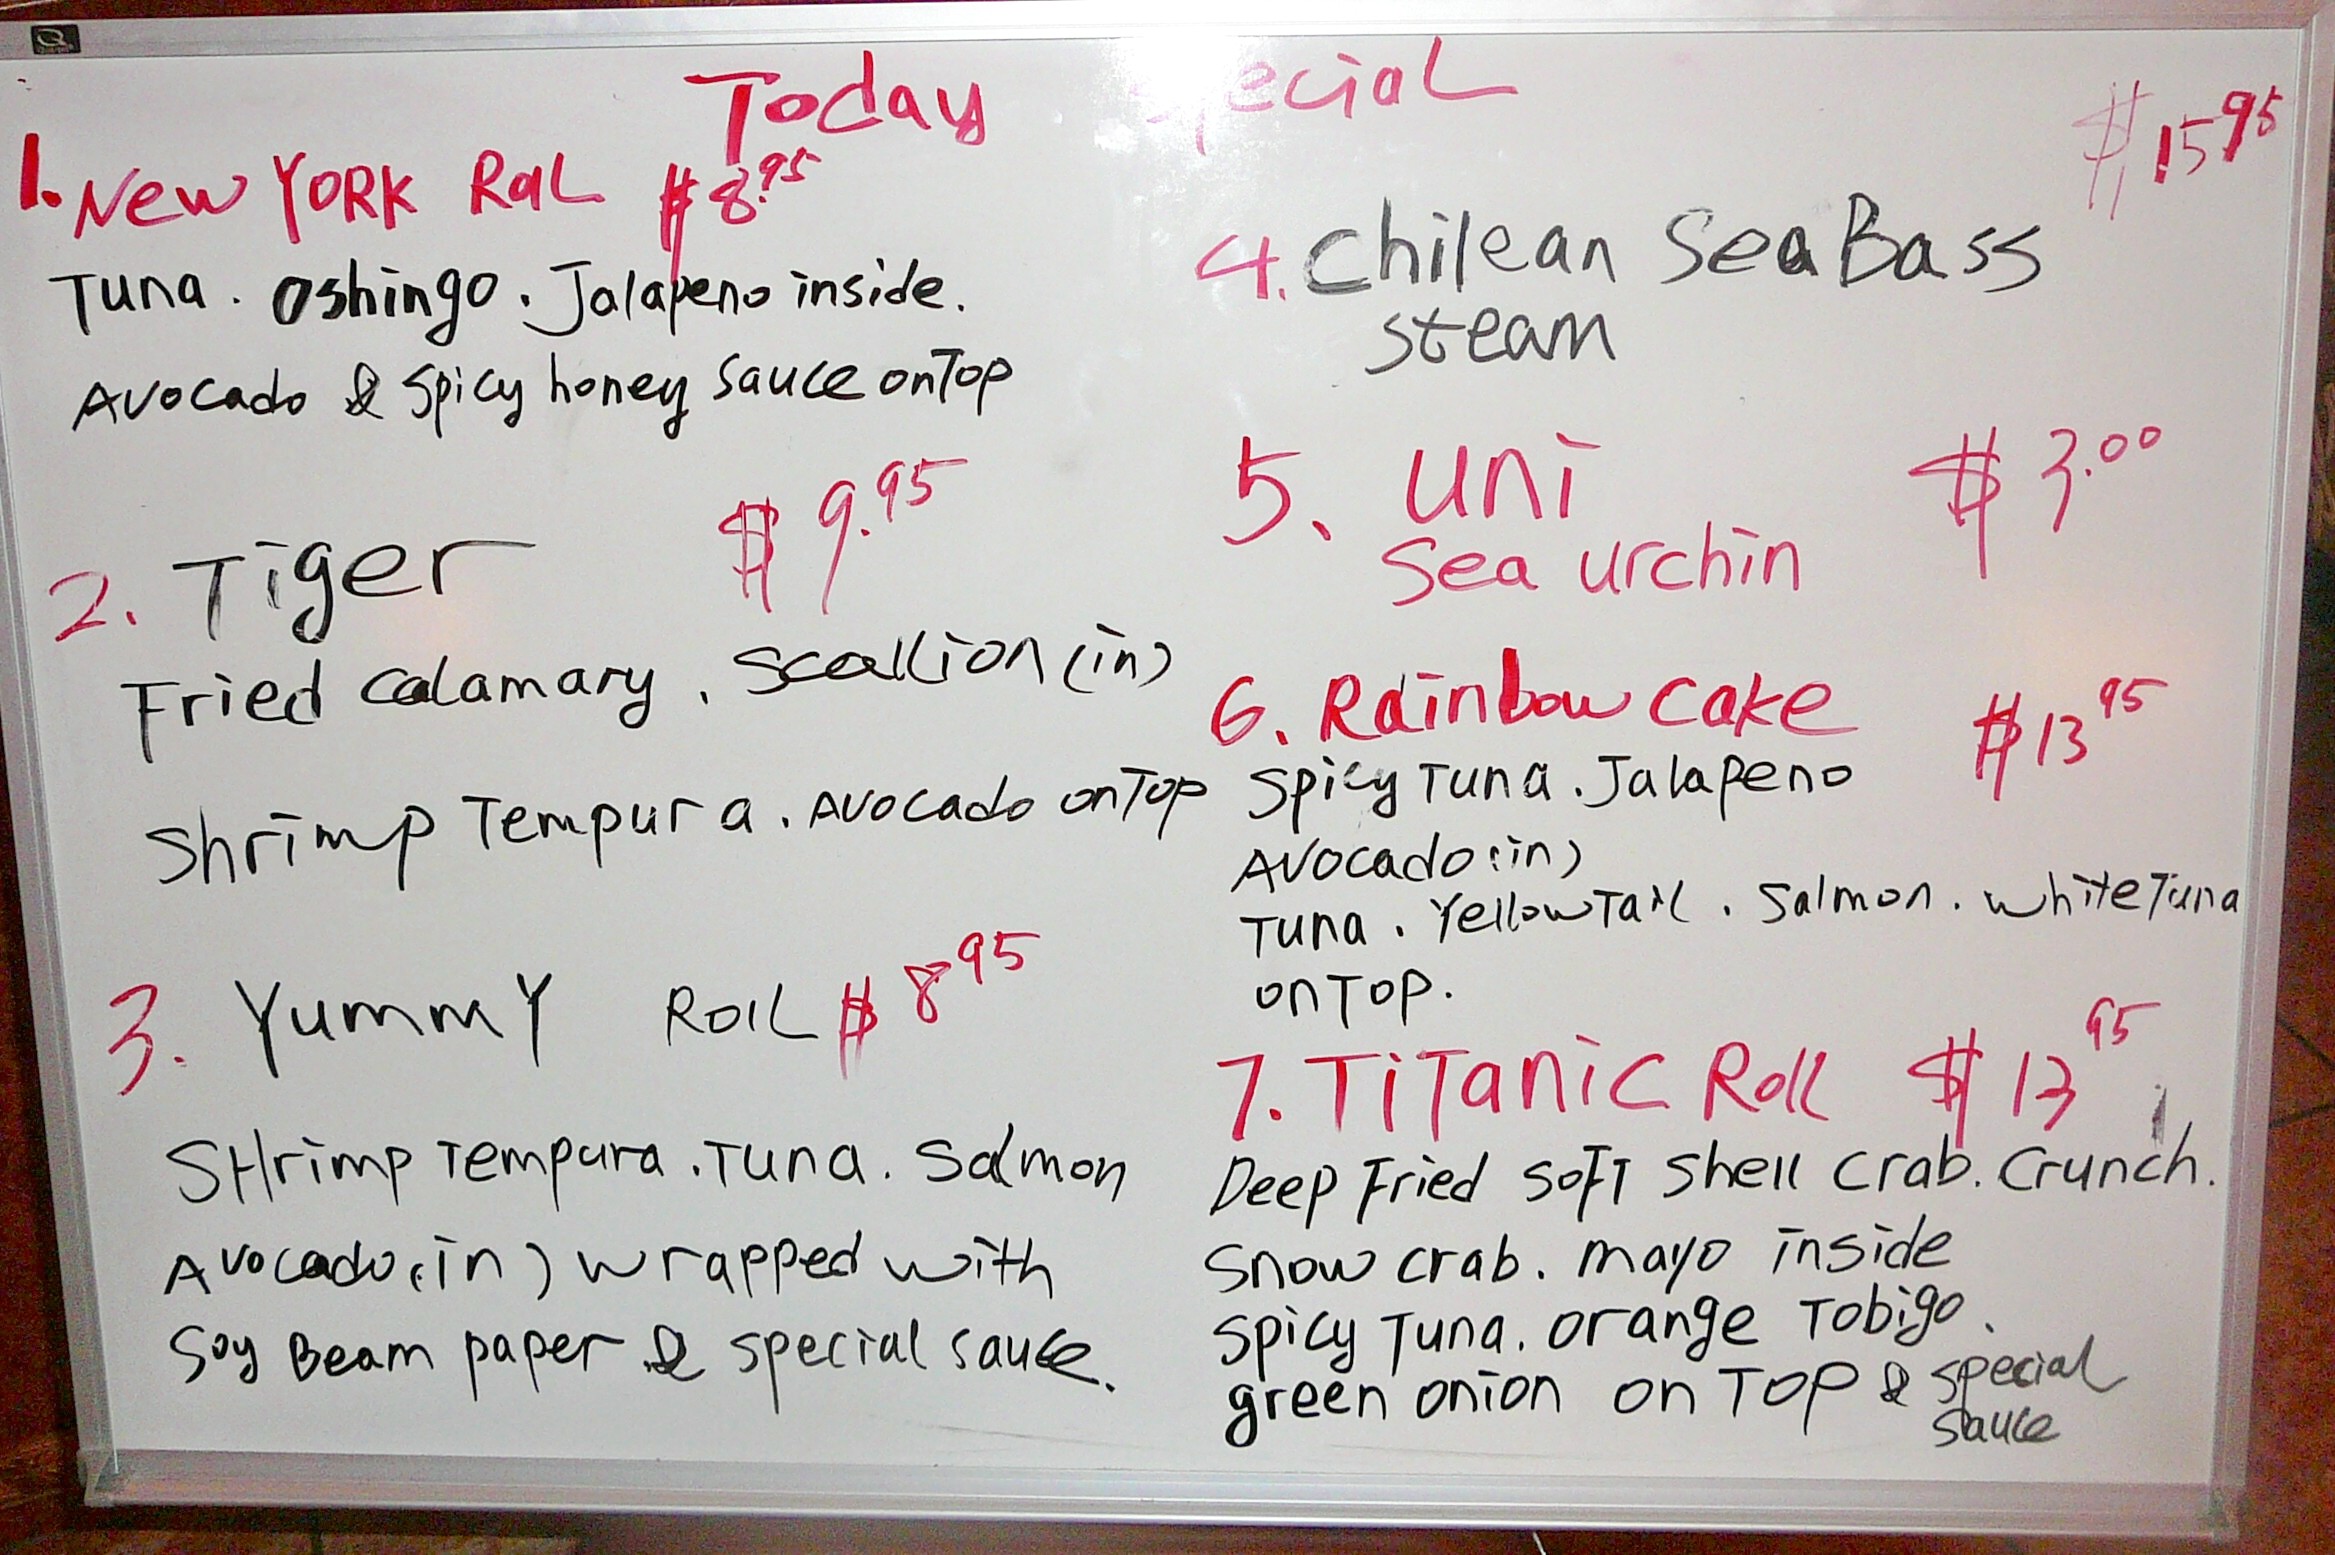 Today Special
1. New YORK Roll $8.95
Tuna. Oshingo. Jalapeno inside.
Avocado & Spicy honey Sauce on Top
2. Tiger $9.95
Fried Calamary. Scallion (in)
Shrimp Tempura. Avocado on Top
3. Yummy Roll $8.95
Shrimp Tempura. Tuna. Salmon
Avocado (in) wrapped with
Soy Beam paper & special sauce.
$15.95
4. Chilean Sea Bass
steam
5. Uni $3.00
Sea urchin
6. Rainbow Cake $13.95
Spicy Tuna. Jalapeno
Avocado (in)
Tuna. Yellow Tail. Salmon. White Tuna
on Top.
7. Titanic Roll $13.95
Deep Fried Soft Shell Crab. Crunch.
Snow crab. mayo inside
Spicy Tuna. orange Tobigo.
green onion on Top & special
sauce